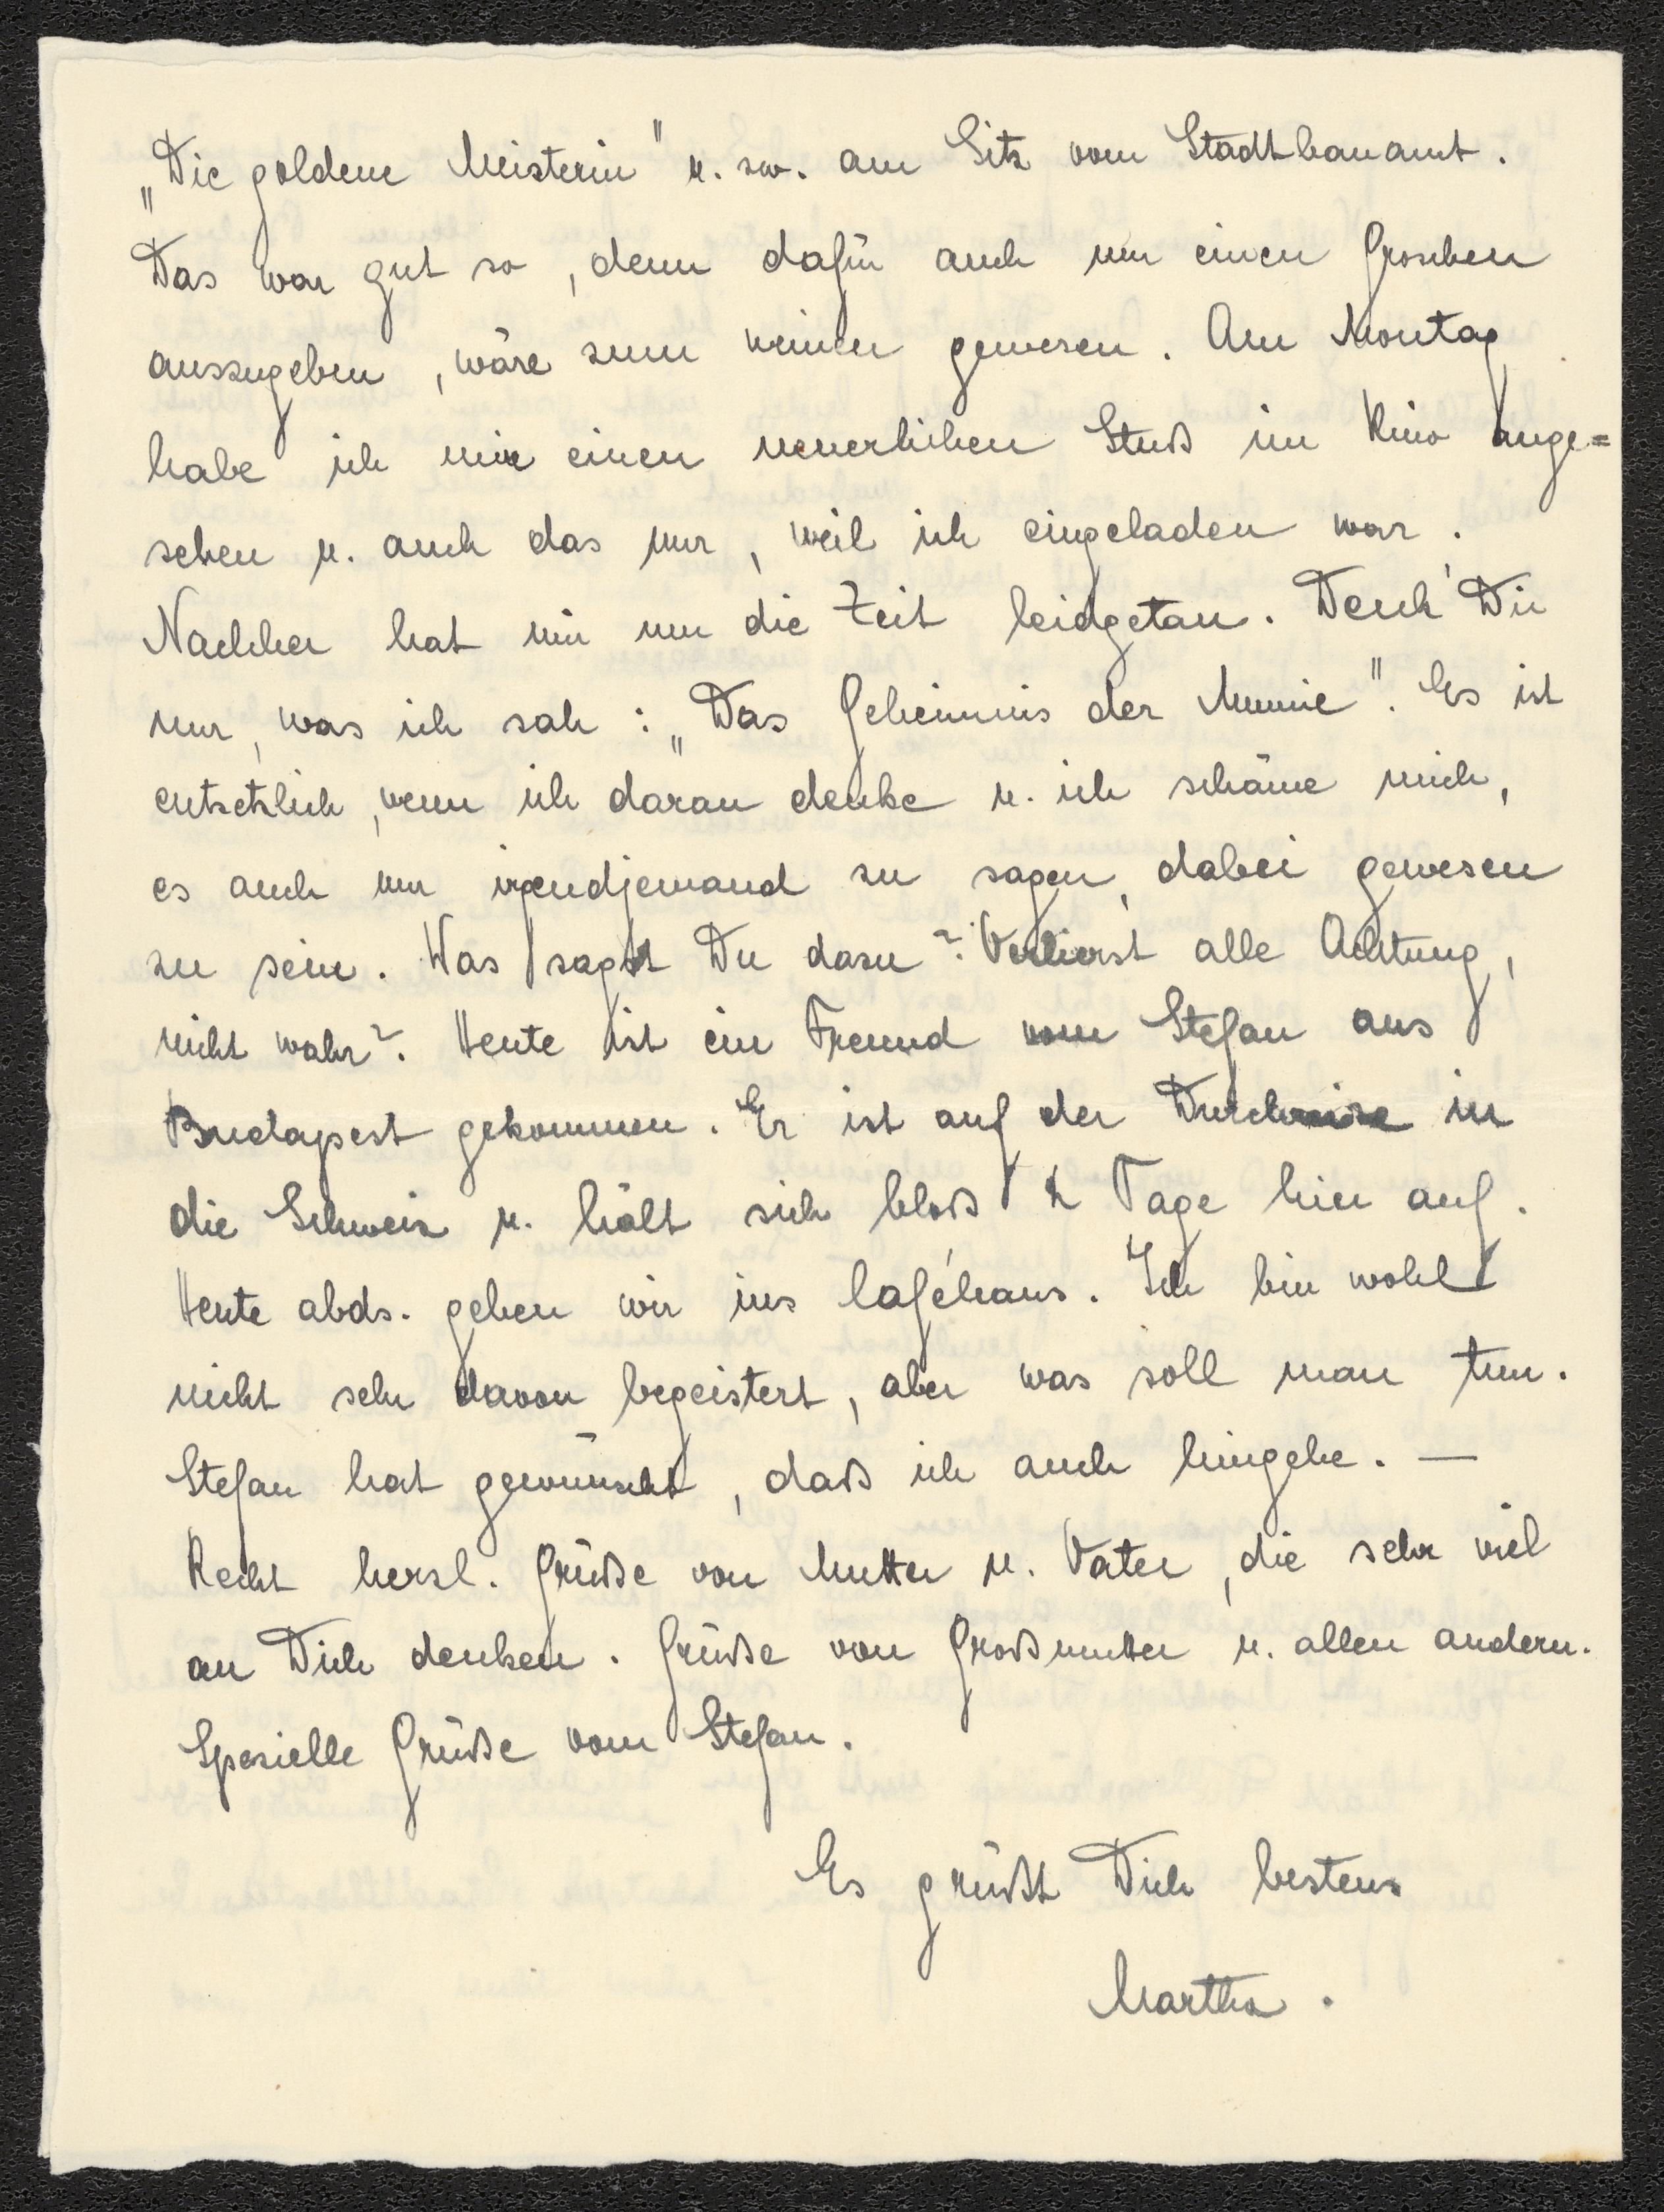 „Die goldene Meisterin" u. zw. am Sitz vom Stadtbauamt.
Das war gut so, denn dafür auch nur einen Groschen
auszugeben, wäre zum weinen gewesen. Am Montag
habe ich mir einen neuerlichen Stuß im Kino ange=
sehen u. auch das nur, weil ich eingeladen war.
Nachher hat mir nur die Zeit leidgetan. Denk' Dir
nur, was ich sah: „Das Geheimnis der Mumie". Es ist
entsetzlich, wenn ich daran denke u. ich schäme mich,
es auch nur irgendjemand zu sagen, dabei gewesen
zu sein. Was sagst Du dazu? Verlierst alle Achtung,
nicht wahr? Heute ist ein Freund vom Stefan aus
Budapest gekommen. Er ist auf der Durchreise in
die Schweiz u. hält sich bloß 2 Tage hier auf.
Heute abds. gehen wir ins Caféhaus. Ich bin wohl
nicht sehr davon begeistert, aber was soll man tun.
Stefan hat gewünscht, daß ich auch hingehe. —
Recht herzl. Grüße von Mutter u. Vater, die sehr viel
an Dich denken. Grüße von Großmutter u. allen andern.
Spezielle Grüße vom Stefan.
Es grüßt Dich bestens
Martha.